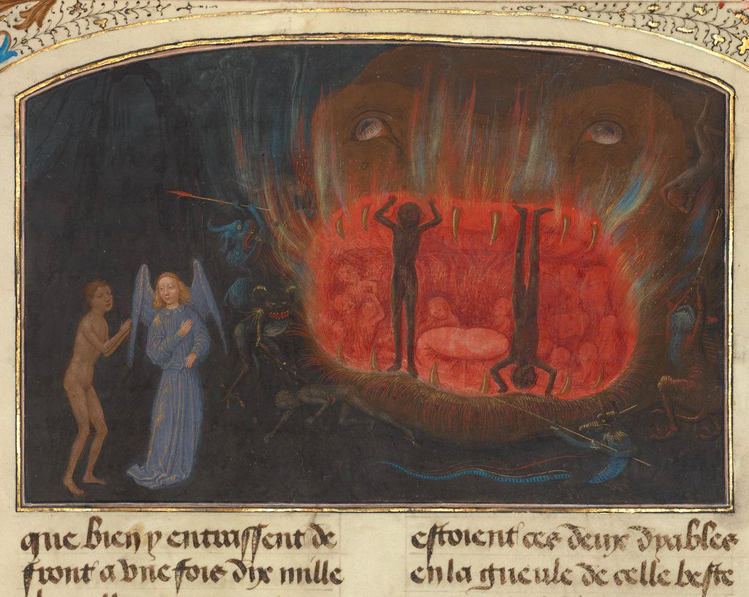 que bien y entraissent de
front a une fois dix mille
estoient ces deux dyables
en la gueule de celle beste